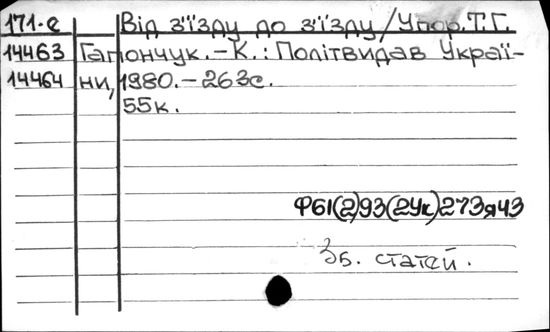 171-е Від з'їзду до з'їзду/Упор.Т.Г.
14463 Гапончук.-К.: Політвидав Украї-
14464 ни, 1980.-263с.
55к.
Ф61(2)93(2Ук)273я43
Зб. статей.